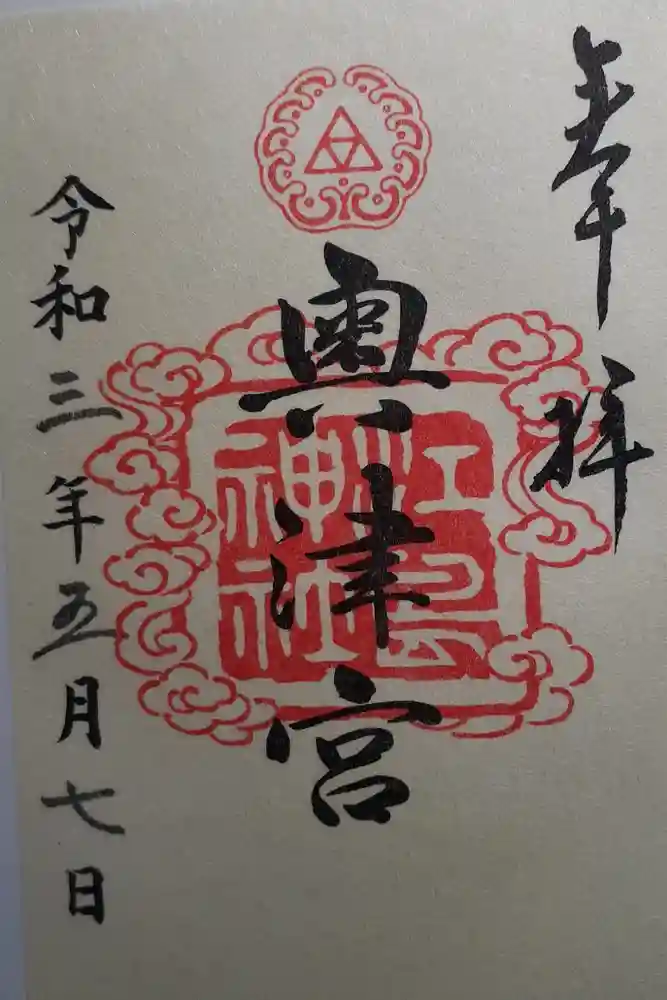 奉拝
奧津宮
江島
神社
令和三年五月七日